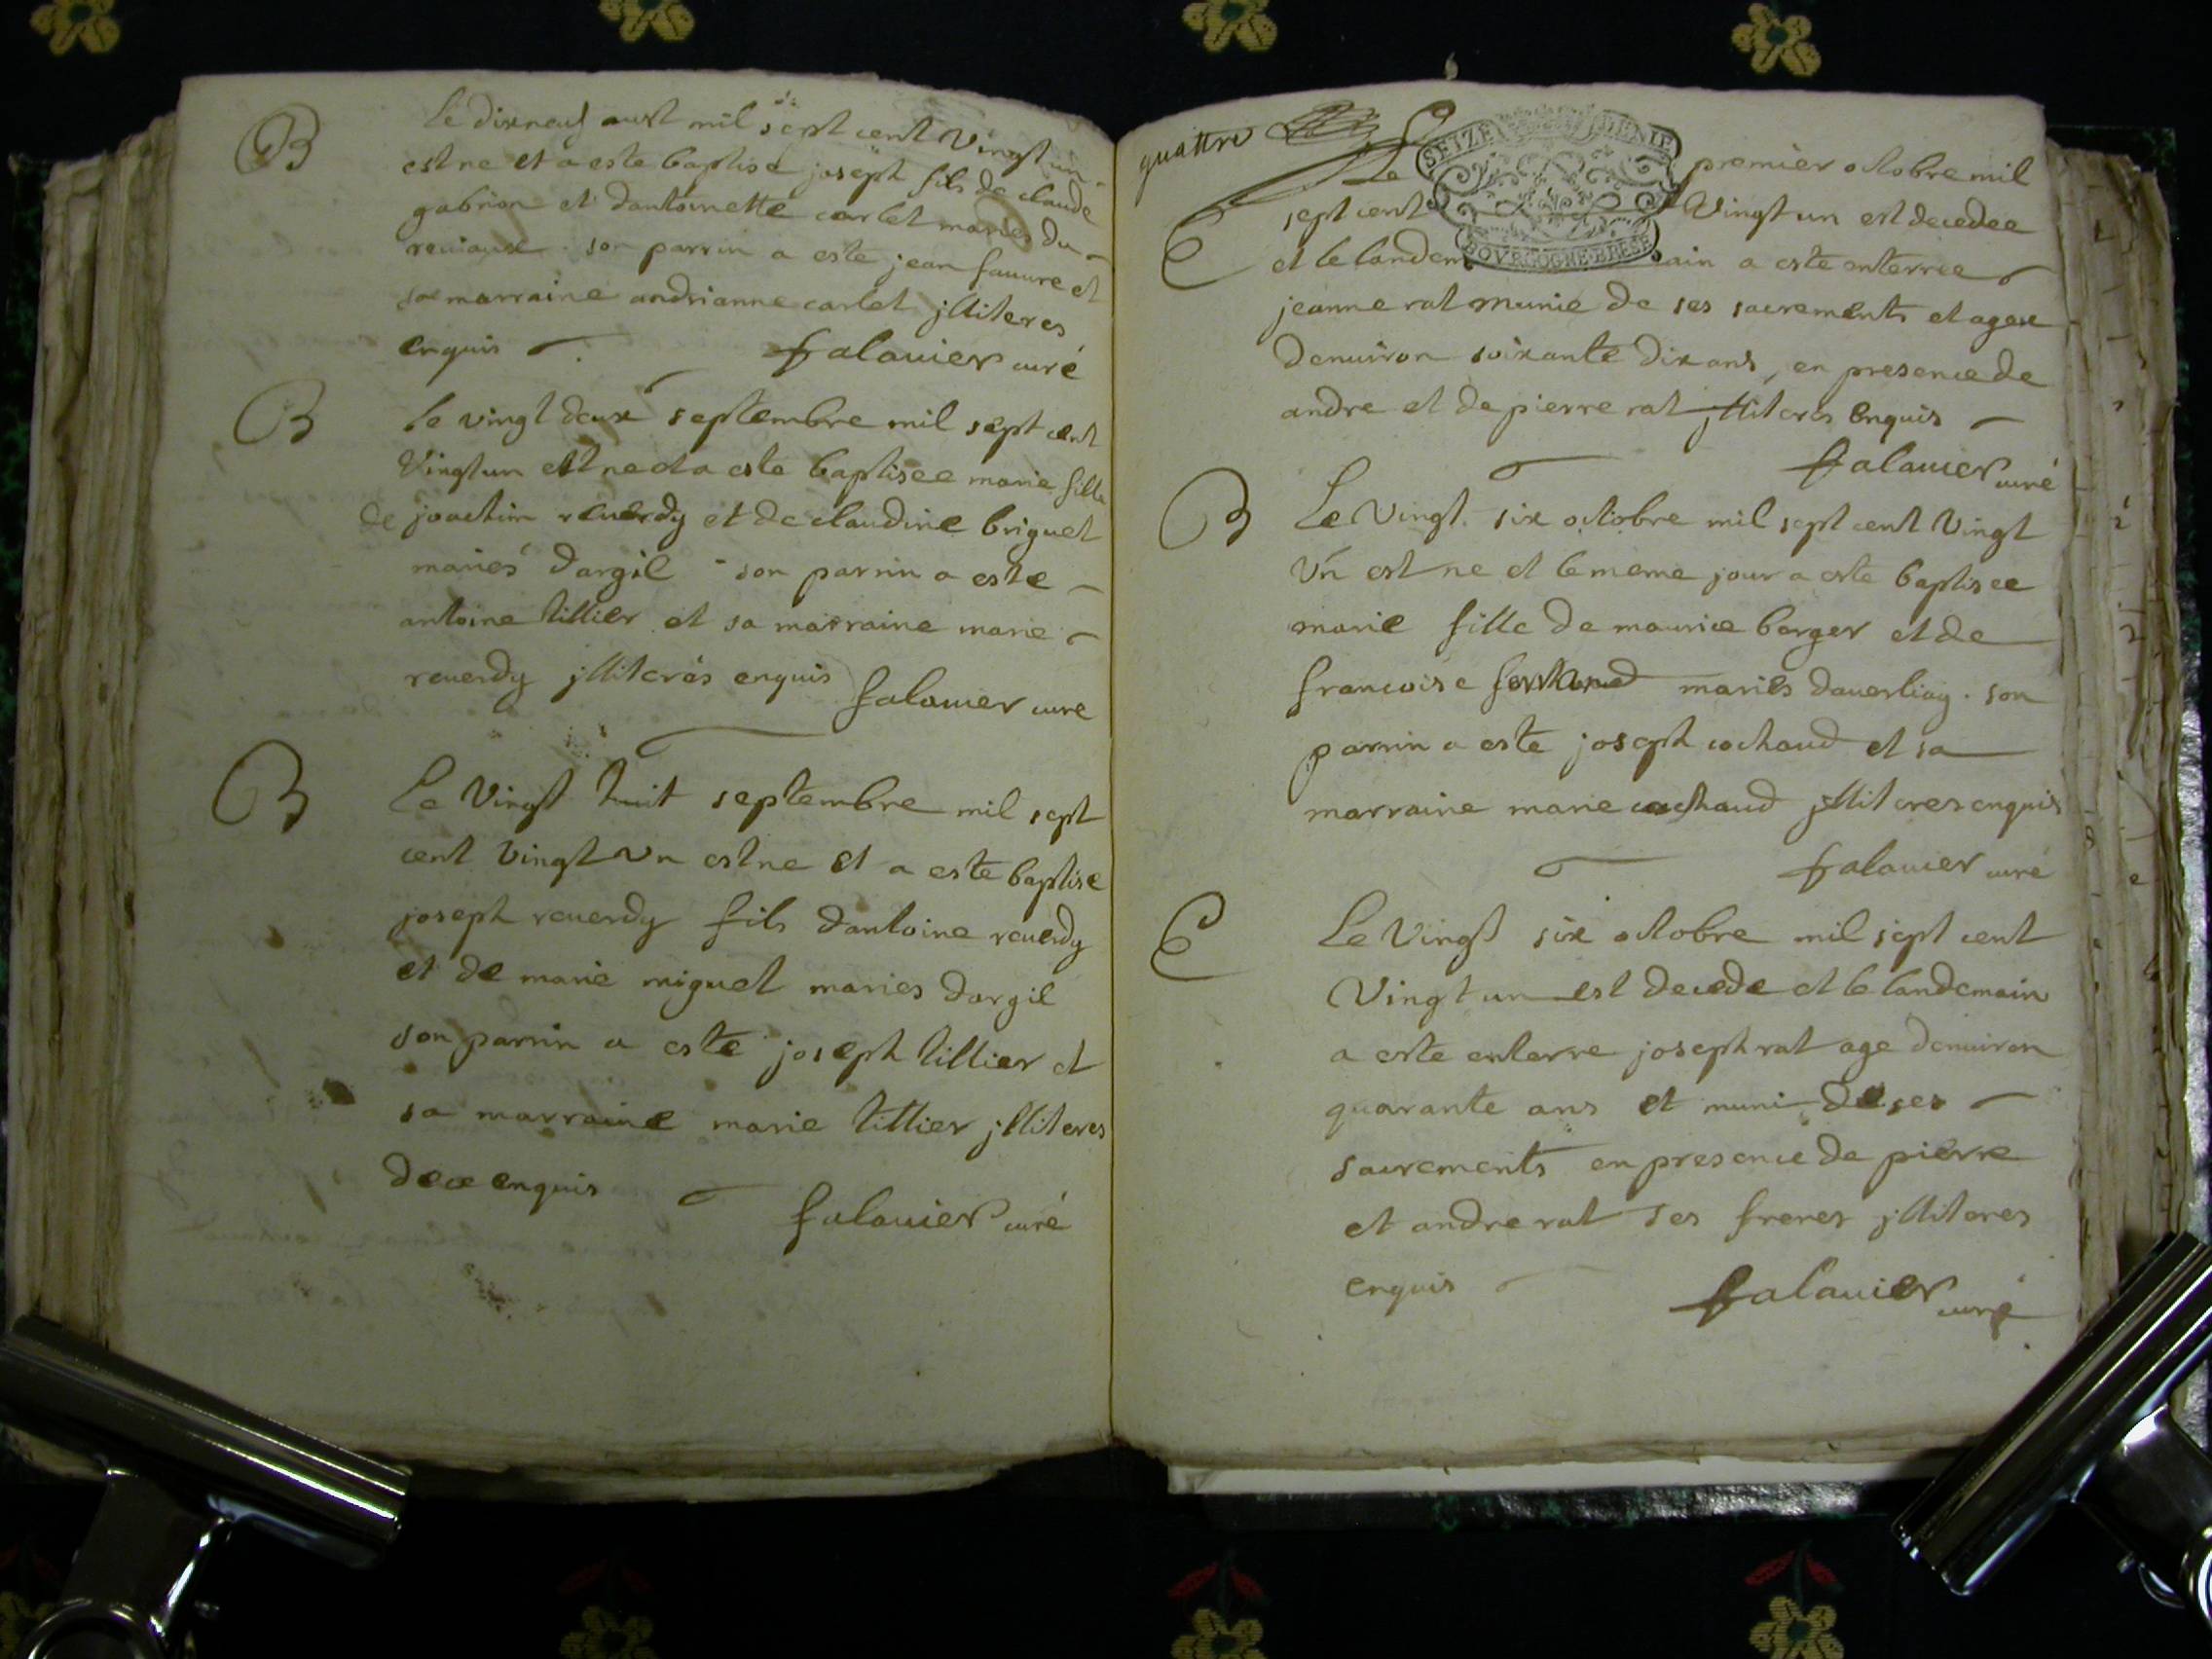 B
Le dixneuf aust mil sept cent Vingt un
est ne et a este baptisé joseph fils de claude
gabrion et dantoinette carlet maries du
reuiaux son parrin a este jean fauure et
sa marraine andrianne carlet jlliteres
enquis falauier curé
B
le vingt deux septembre mil sept cent
Vingt un est ne et a este baptisee marie fille
de joachim reuerdy et de claudine briguet
mariés dargil son parrin a este
antoine tillier et sa marraine marie
reuerdy jlliterés enquis falauier cure
B
Le Vingt huit septembre mil sept
cent Vingt Vn est ne et a este baptise
joseph reuerdy fils dantoine reuerdy
et de marie miguet maries dargil
son parrin a este joseph tillier et
sa marraine marie tillier jlliteres
de ce enquis falauier curé
quattre
SEIZE DENIE
BOVRGOGNE BRESE
E
Le premier octobre mil
sept cent Vingt un est decedee
et le landemain a este enterree
jeanne rat munie de ses sacrements et agee
denuiron soixante dix ans, en presence de
andre et de pierre rat jlliteres enquis
falauier curé
B
Le Vingt six octobre mil sept cent Vingt
Vn est ne et le meme jour a este baptisee
marie fille de maurice berger et de
francoise maries dauerliay. son
parrin a este joseph cochaud et sa
marraine marie cochaud jlliteres enquis
falauier curé
E
Le Vingt six octobre mil sept cent
Vingt un est decede et le landemain
a este enterre joseph rat age denuiron
quarante ans et muni de ses
sacrements en presence de pierre
et andre rat ses freres jlliteres
enquis falauier curé